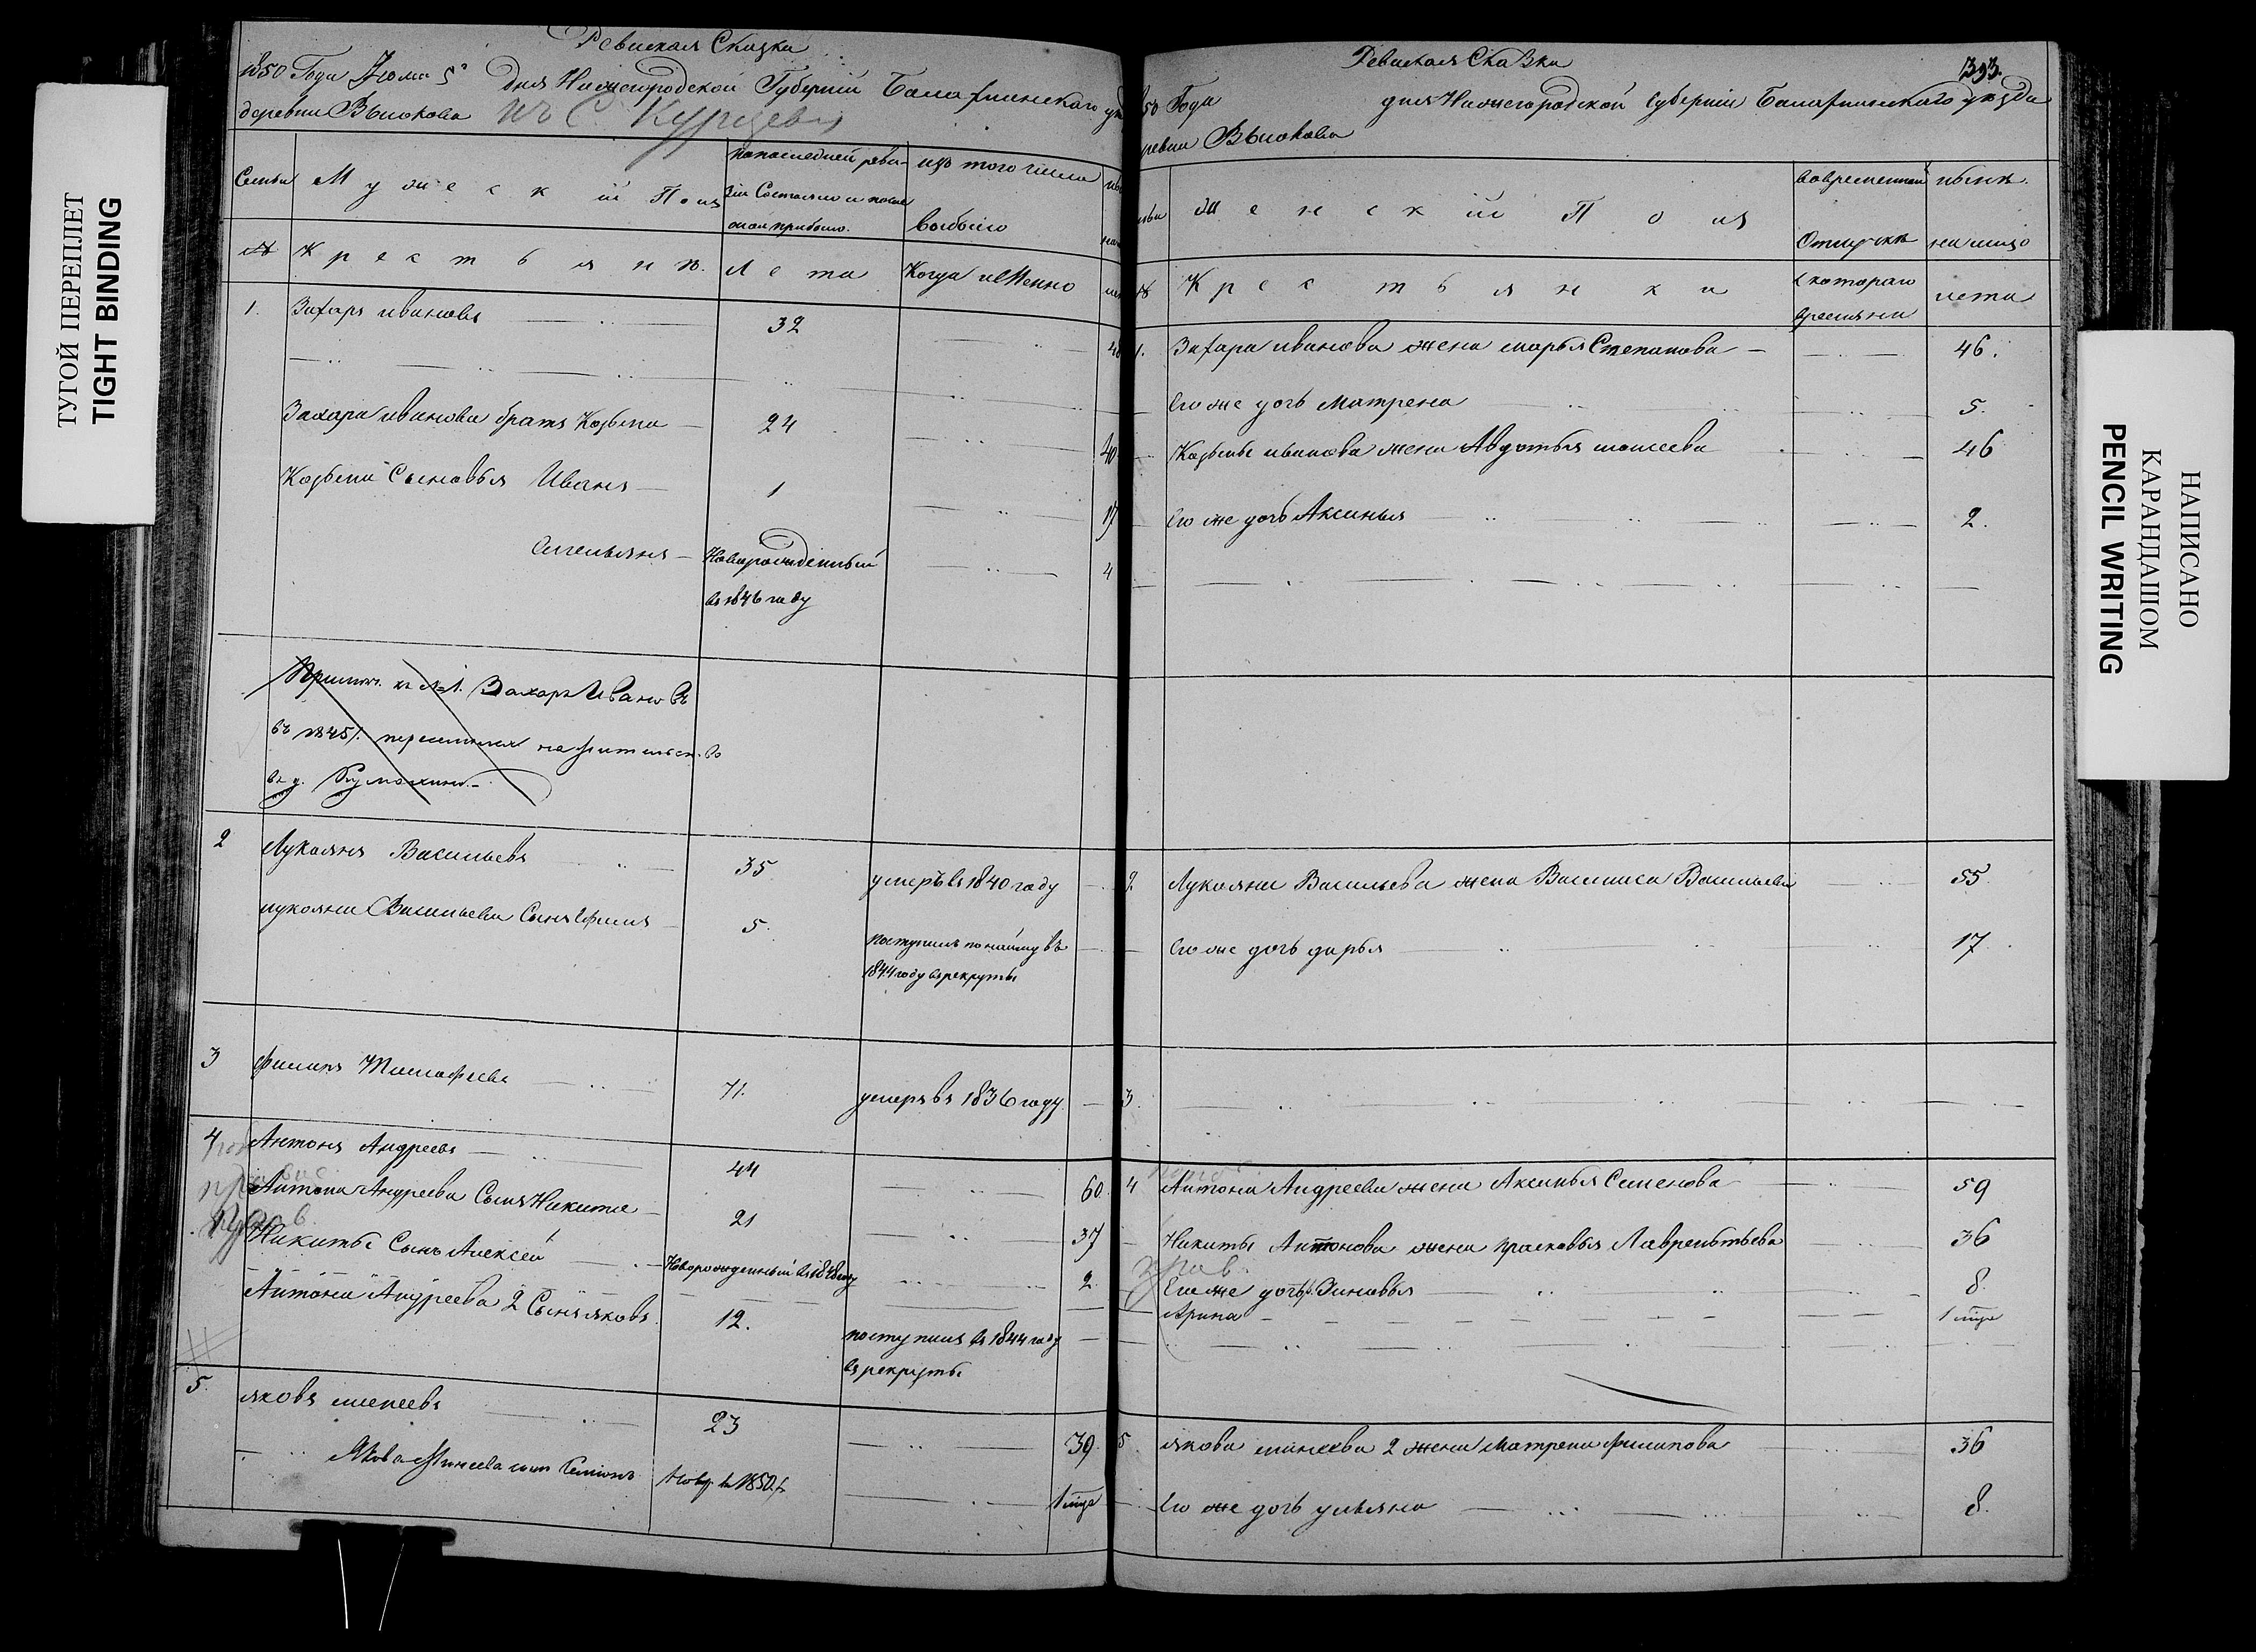 ТУГОЙ ПЕРЕПЛЕТ
TIGHT BINDING
Ревиская Сказка
1850 Года Июля 5 Дня Нижегородской Губернии Балахнинского
деревни Высокова
Семьи
Мужеский Пол
по последней реви-
зии Состояло и после
оной прибыло.
изъ того числа
выбыло
№
Крестьянъ.
Лета
Когда именно
1. Захаръ Ивановъ 32
Захара Иванова братъ Козьма 24 40
Козьмы Сыновья Иванъ 1 17
Емельянъ Новорожденный 4
въ 1846 году
Примѣч. къ №1. Захаръ Ивановъ
въ 1845 г. на жительство
въ д.
2 Лукоянъ Васильевъ 35 умеръ въ 1840 году
Лукояна Васильева Сынъ Ефимъ 5 поступилъ по найму въ
1844 году въ рекруты
3 Филипъ Тимофеевъ 71. умеръ въ 1836 году.
4 Антонъ Андреевъ 44 60
Антона Андреева Сынъ Никита 21 37
Никиты Сынъ Алексей Новорожденный въ 1848 году 2
Антона Андреева 2 Сынъ Яковъ 12. поступилъ въ 1844 году
въ рекруты
5. Яковъ Минеевъ 23 39.
Якова Минеева сынъ Новор. въ 1850 г.
Ревиская Сказка
393.
50 Года дня Нижегородской Губернии Балахнинского уезда
ревни Высокова
Женский Пол
во временной
Отлучкѣ
нынѣ
на лицо
№
Крестьянки
с котораго
времяни
лета
1. Захара Иванова жена Марья Степанова 46.
Его же дочь Матрена 5.
Козьмы Иванова жена Авдотья Моисеева 46
Его же дочь Аксинья 2.
2. Лукояна Васильева жена Василиса Васильева 55
Его же дочь Дарья 17.
3.
4 Антона Андреева жена Аксинья Семенова 59
Никиты Антонова жена Прасковья Лаврентьева 36
Его же дочь 1. Зиновья 8
Арина
5. Якова Минеева 2 жена Матрена Филипова 36
Его же дочь Ульяна 8.
НАПИСАНО
КАРАНДАШОМ
PENCIL WRITING